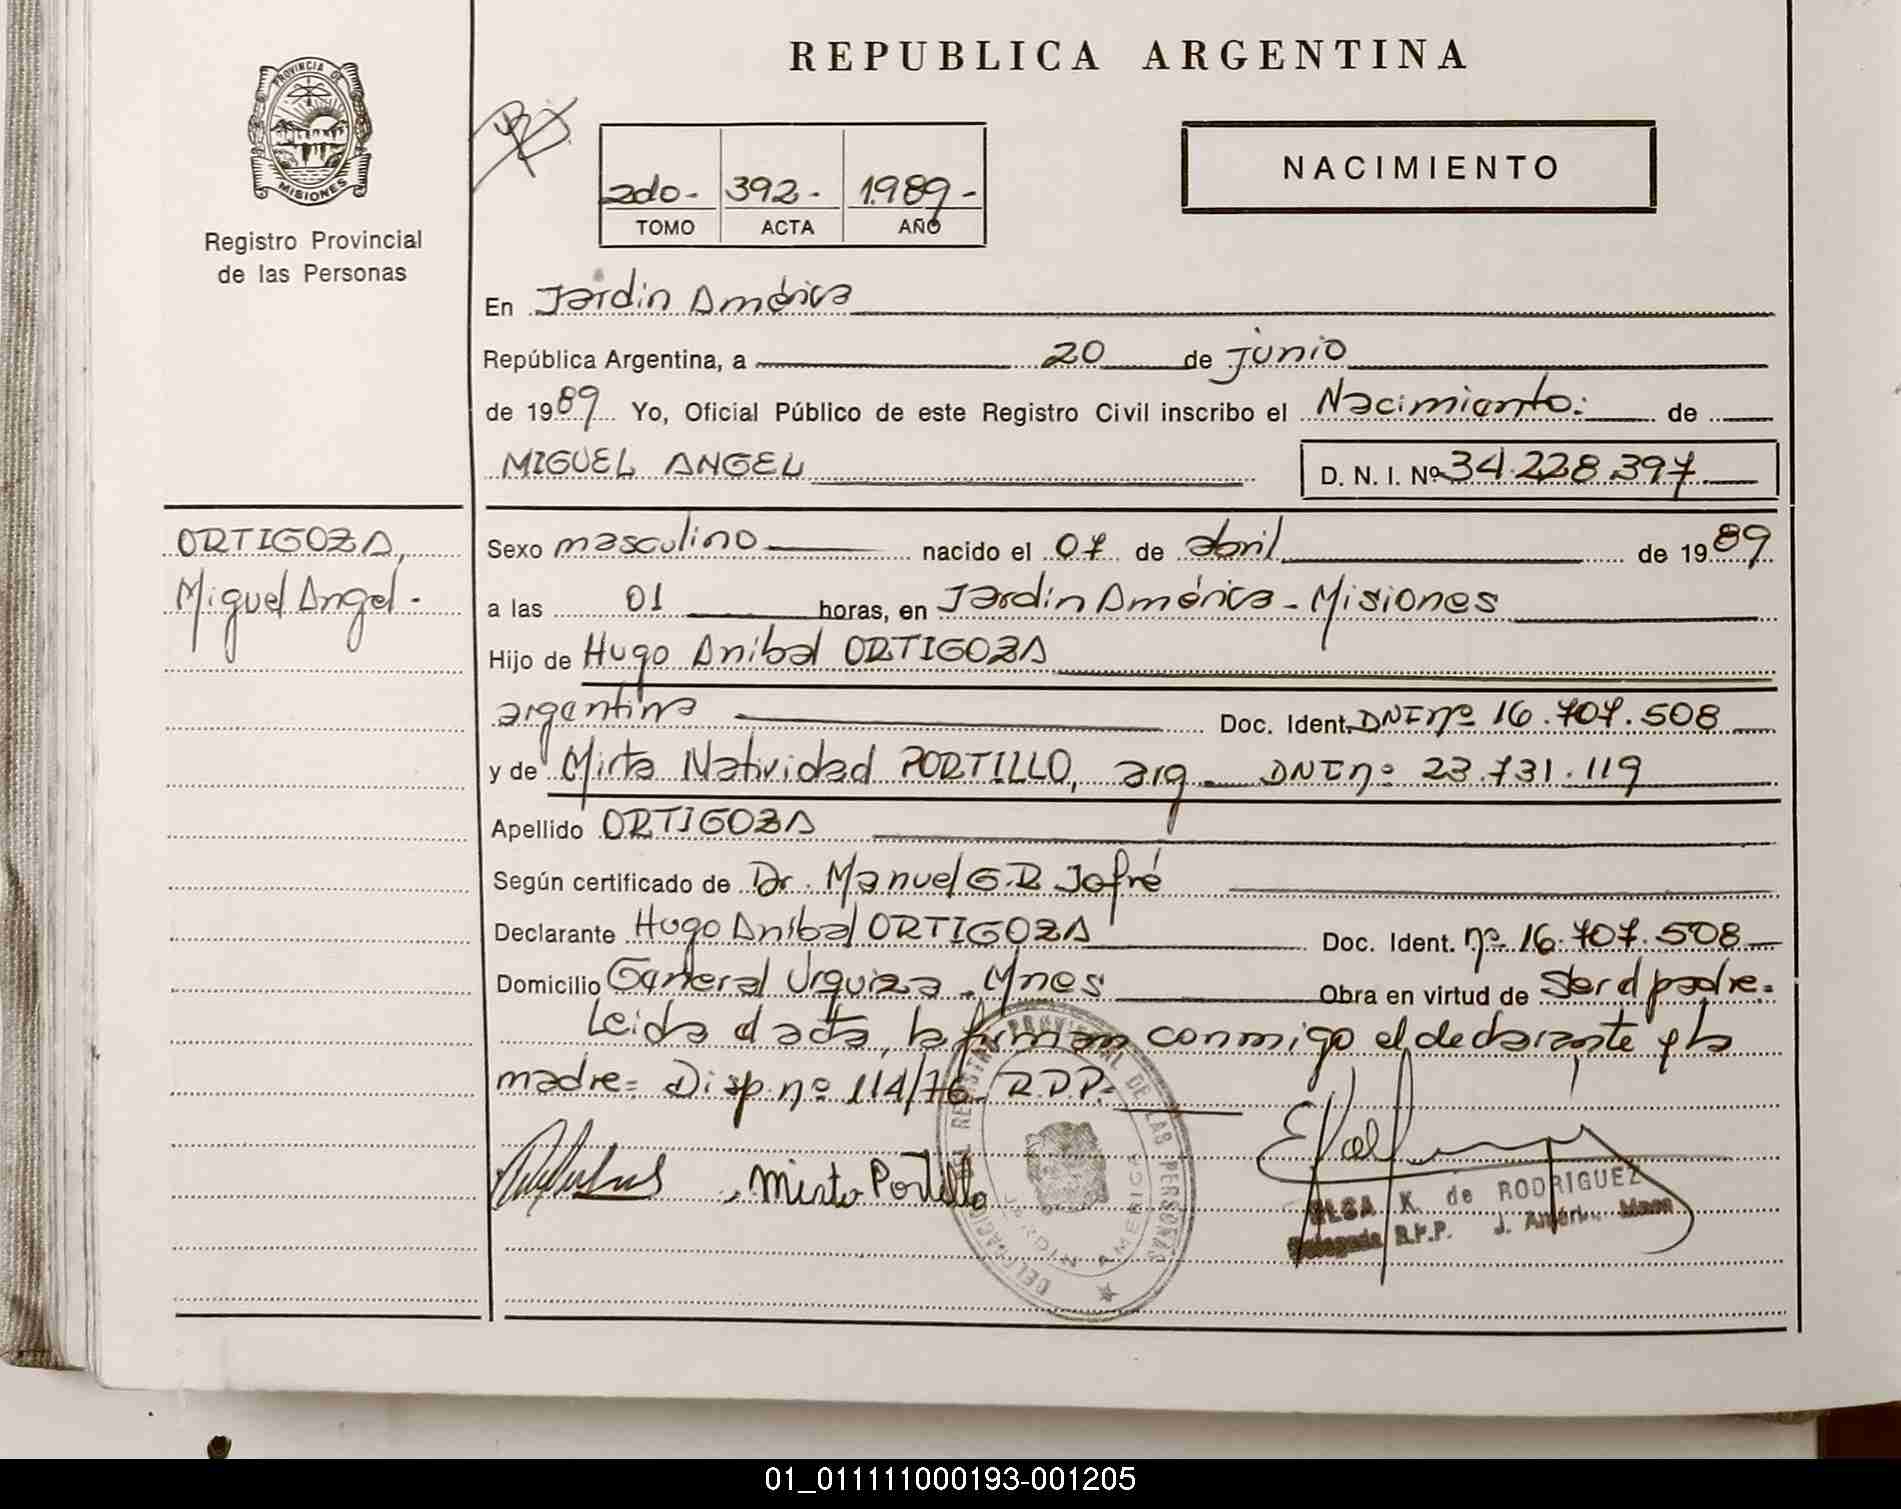 REPUBLICA ARGENTINA
PROVINCIA DE
MISIONES
Registro Provincial
de las Personas
2do- 392- 1.989-
TOMO ACTA AÑO
NACIMIENTO
En Jardin América
República Argentina, a 20 de junio
de 1989 Yo, Oficial Público de este Registro Civil inscribo el Nacimiento: de
MIGUEL ANGEL D. N. I. Nº 34.228.397
ORTIGOZA,
Miguel Angel.-
Sexo masculino nacido el 07 de abril de 1989
a las 01 horas, en Jardin América - Misiones
Hijo de Hugo Anibal ORTIGOZA
argentina Doc. Ident. DNI nº 16.707.508
y de Mirta Natividad PORTILLO, arg. DNI nº 23.731.119
Apellido ORTIGOZA
Según certificado de Dr. Manuel G.R. Jofré
Declarante Hugo Anibal ORTIGOZA Doc. Ident. nº 16.707.508
Domicilio General Urquiza - Mnes Obra en virtud de Ser el padre.=
Leida el acta, la firman conmigo el declarante y la
madre= Disp. nº 114/76 R.D.P.-
Mirta Portillo
DELEGACION REGISTRO PROVINCIAL DE LAS PERSONAS
JARDIN AMERICA
ELSA K. de RODRIGUEZ
Delegada R.P.P. J. América Mnes
01_011111000193-001205